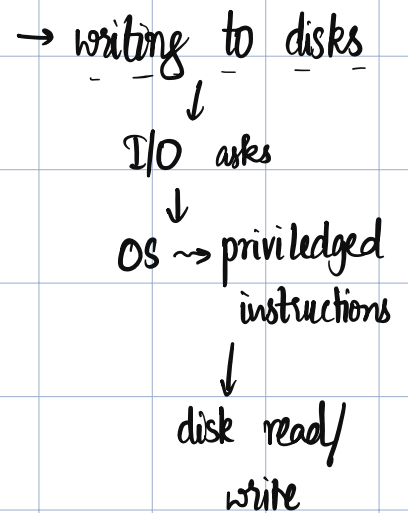 → writing to disks
↓
I/O asks
↓
OS ⇝ priviledged
instructions
↓
disk read/
write